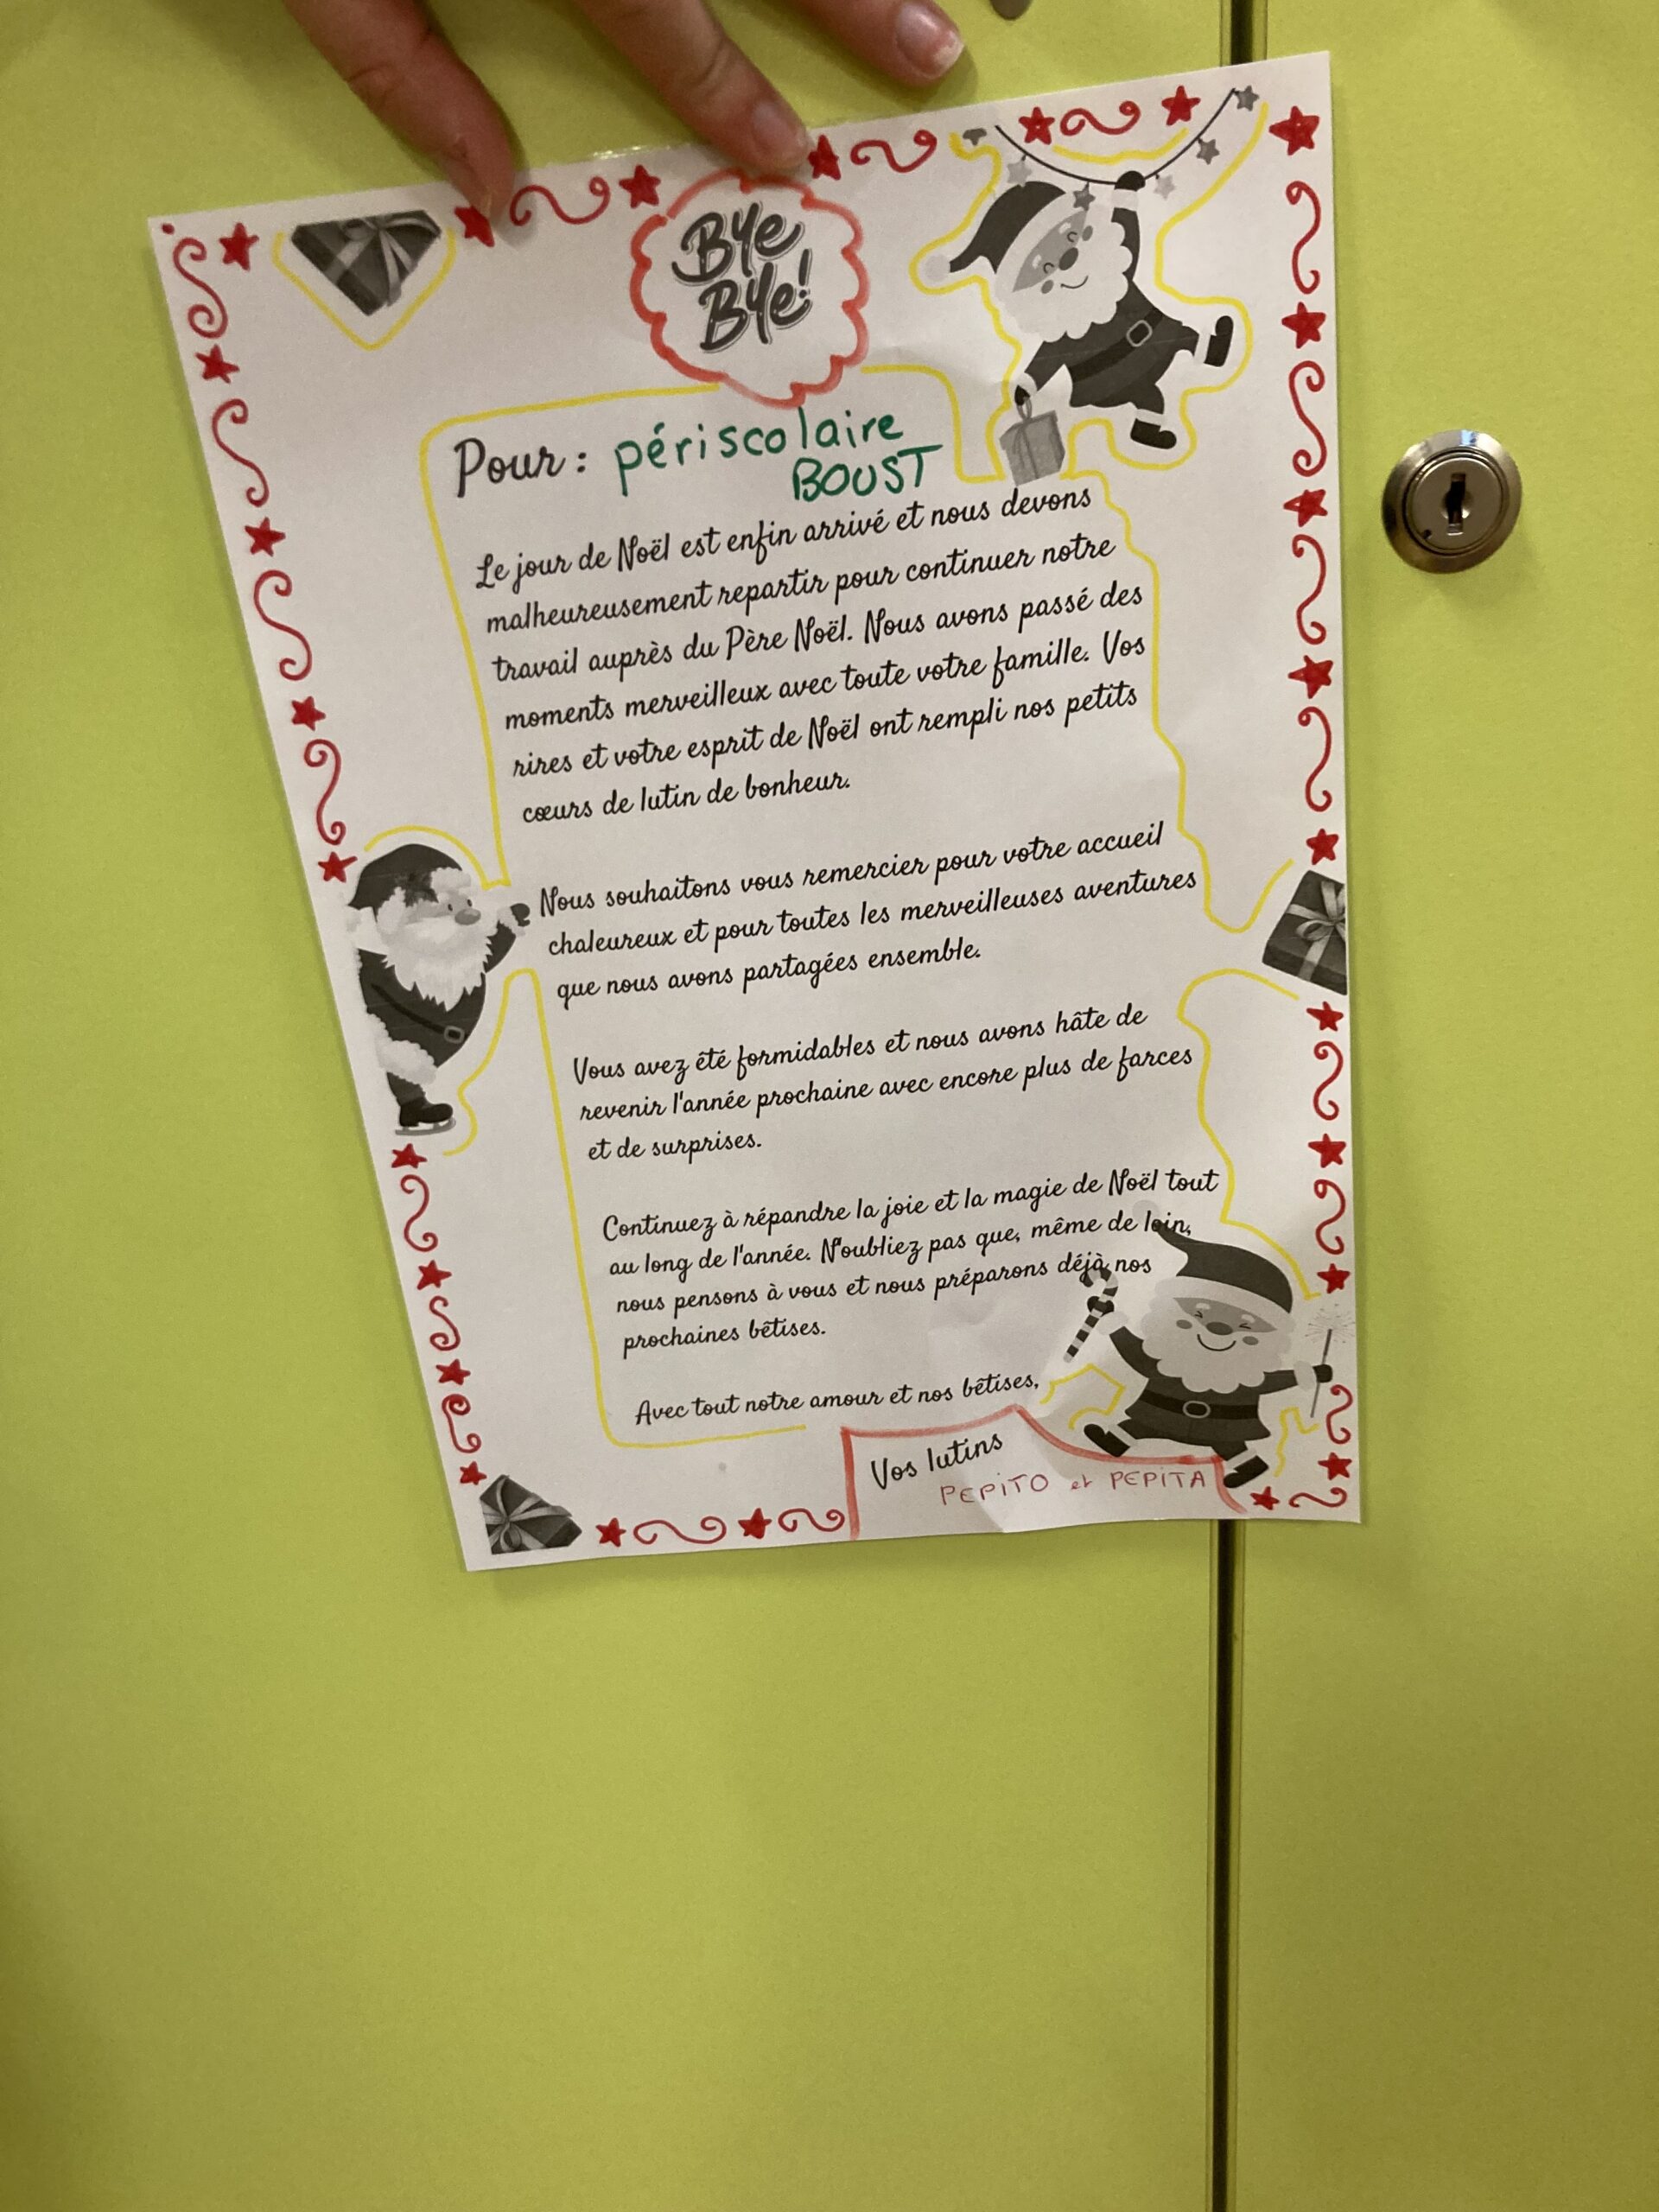 Bye
Bye!
Pour : périscolaire
BOUST
Le jour de Noël est enfin arrivé et nous devons
malheureusement repartir pour continuer notre
travail auprès du Père Noël. Nous avons passé des
moments merveilleux avec toute votre famille. Vos
rires et votre esprit de Noël ont rempli nos petits
cœurs de lutin de bonheur.
Nous souhaitons vous remercier pour votre accueil
chaleureux et pour toutes les merveilleuses aventures
que nous avons partagées ensemble.
Vous avez été formidables et nous avons hâte de
revenir l'année prochaine avec encore plus de farces
et de surprises.
Continuez à répandre la joie et la magie de Noël tout
au long de l'année. N'oubliez pas que, même de loin,
nous pensons à vous et nous préparons déjà nos
prochaines bêtises.
Avec tout notre amour et nos bêtises,
Vos lutins
PEPiTO et PEPiTA